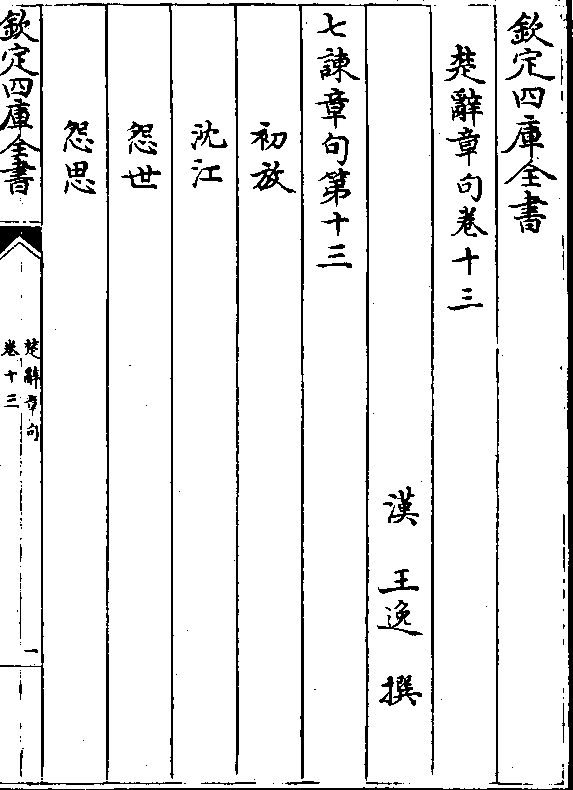 欽定四庫全書
楚辭章句卷十三
漢 王逸 撰
七諫章句第十三
初放
沈江
怨世
怨思
欽定四庫全書
楚辭章句
卷十三
一